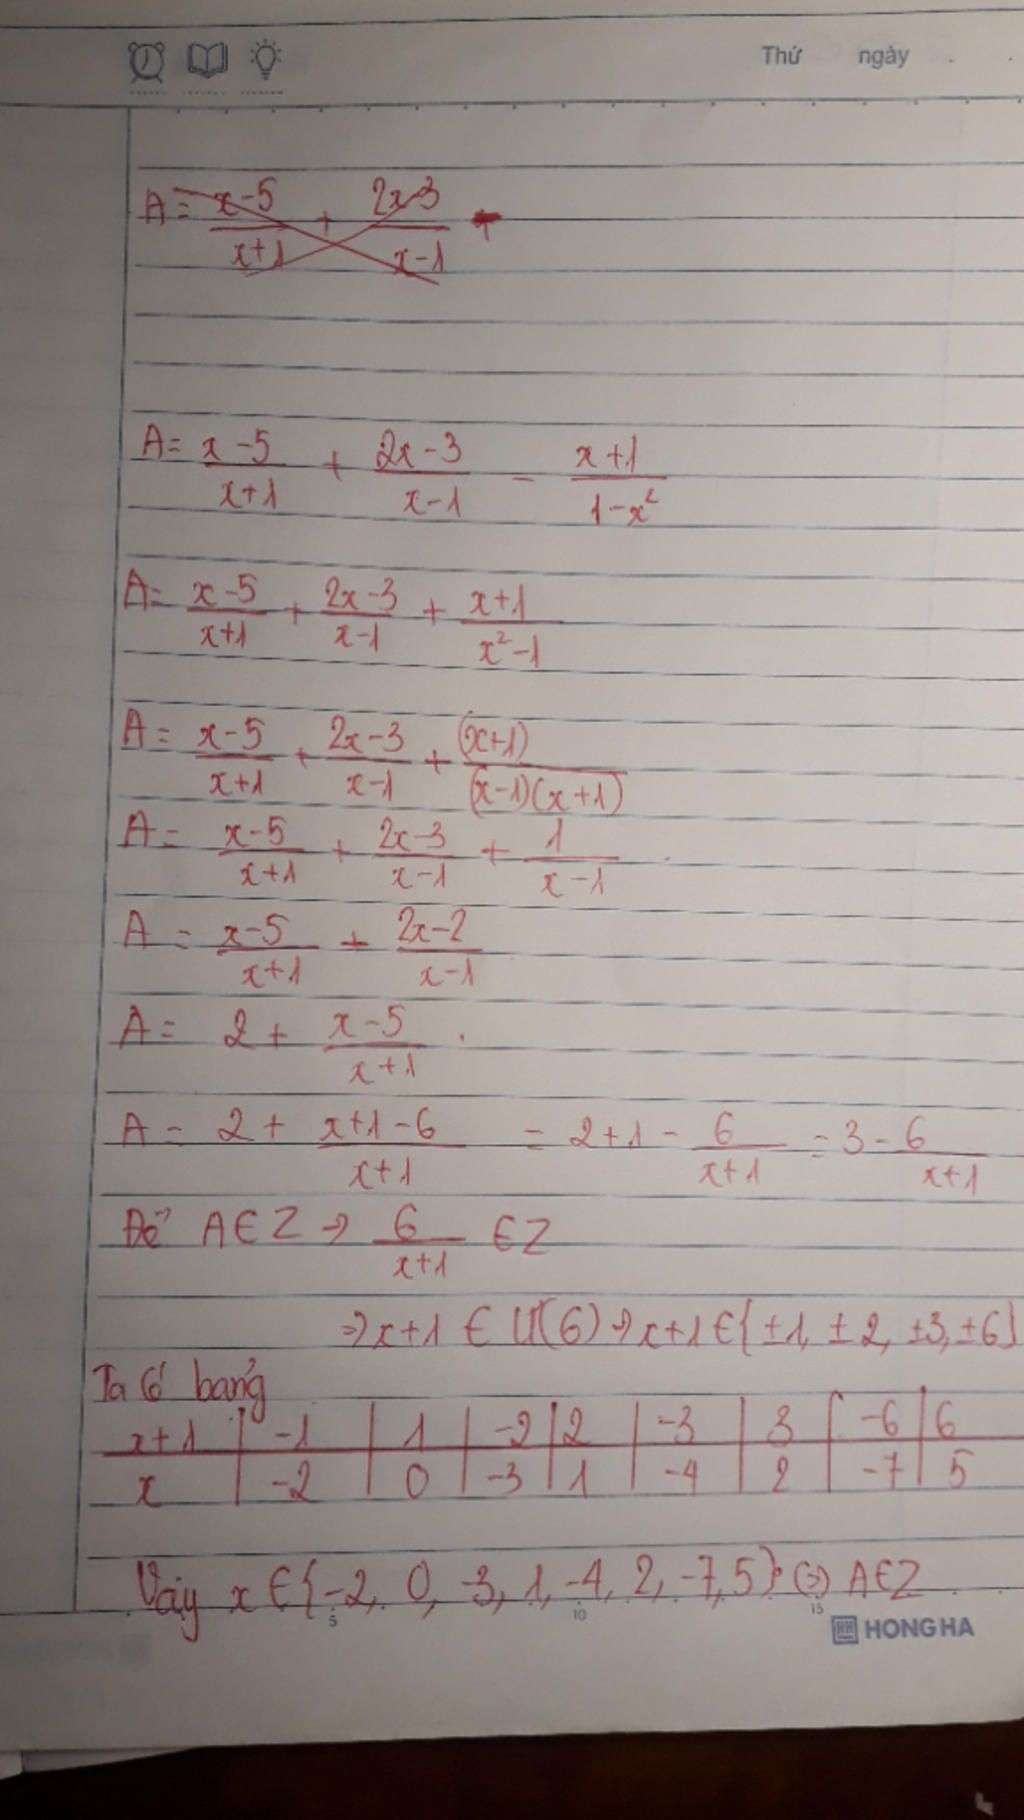 Thứ ngày
A = x-5/x+1 + 2x-3/x-1
A = x-5/x+1 + 2x-3/x-1 - x+1/1-x²
A = x-5/x+1 + 2x-3/x-1 + x+1/x²-1
A = x-5/x+1 + 2x-3/x-1 + (x+1)/(x-1)(x+1)
A = x-5/x+1 + 2x-3/x-1 + 1/x-1
A = x-5/x+1 + 2x-2/x-1
A = 2 + x-5/x+1
A = 2 + x+1-6/x+1 = 2+1 - 6/x+1 = 3 - 6/x+1
Để A ∈ Z => 6/x+1 ∈ Z
=> x+1 ∈ Ư(6) => x+1 ∈ {±1, ±2, ±3, ±6}
Ta có bảng
x+1 | -1 | 1 | -2 | 2 | -3 | 3 | -6 | 6
x | -2 | 0 | -3 | 1 | -4 | 2 | -7 | 5
Vậy x ∈ {-2, 0, -3, 1, -4, 2, -7, 5} (=) A ∈ Z
5 10 15
HH HONG HA